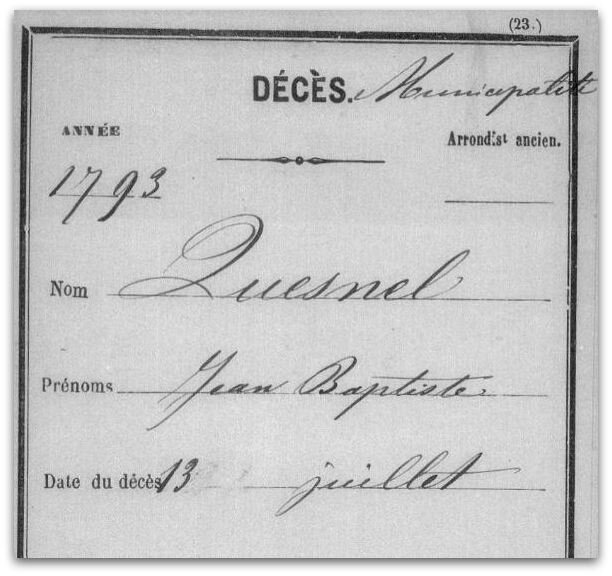 (23.)
DÉCÈS. Municipalité
ANNÉE
Arrondist ancien.
1793
Nom Quesnel
Prénoms Jean Baptiste
Date du décès 13 juillet